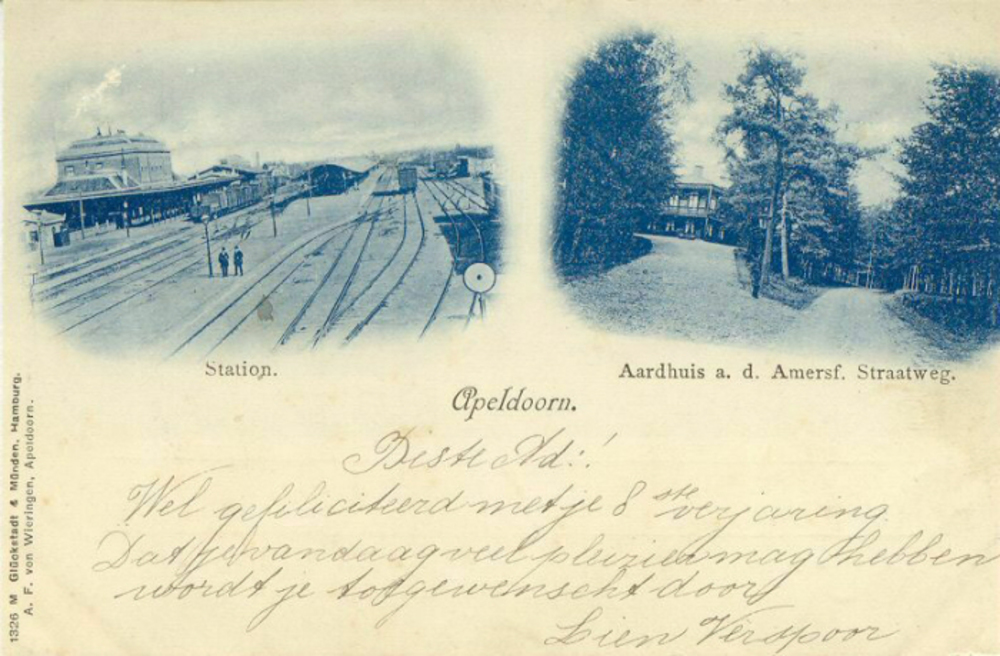 Station.
Aardhuis a. d. Amersf. Straatweg.
Apeldoorn.
Beste Ad:!
Wel gefiliciteerd met je 8 ste verjaring
Dat je vandaag veel plezier mag hebben
wordt je totgewenscht door
Lien Verspoor
1326 M Glückstadt & Münden, Hamburg.
A. F. von Wieringen, Apeldoorn.